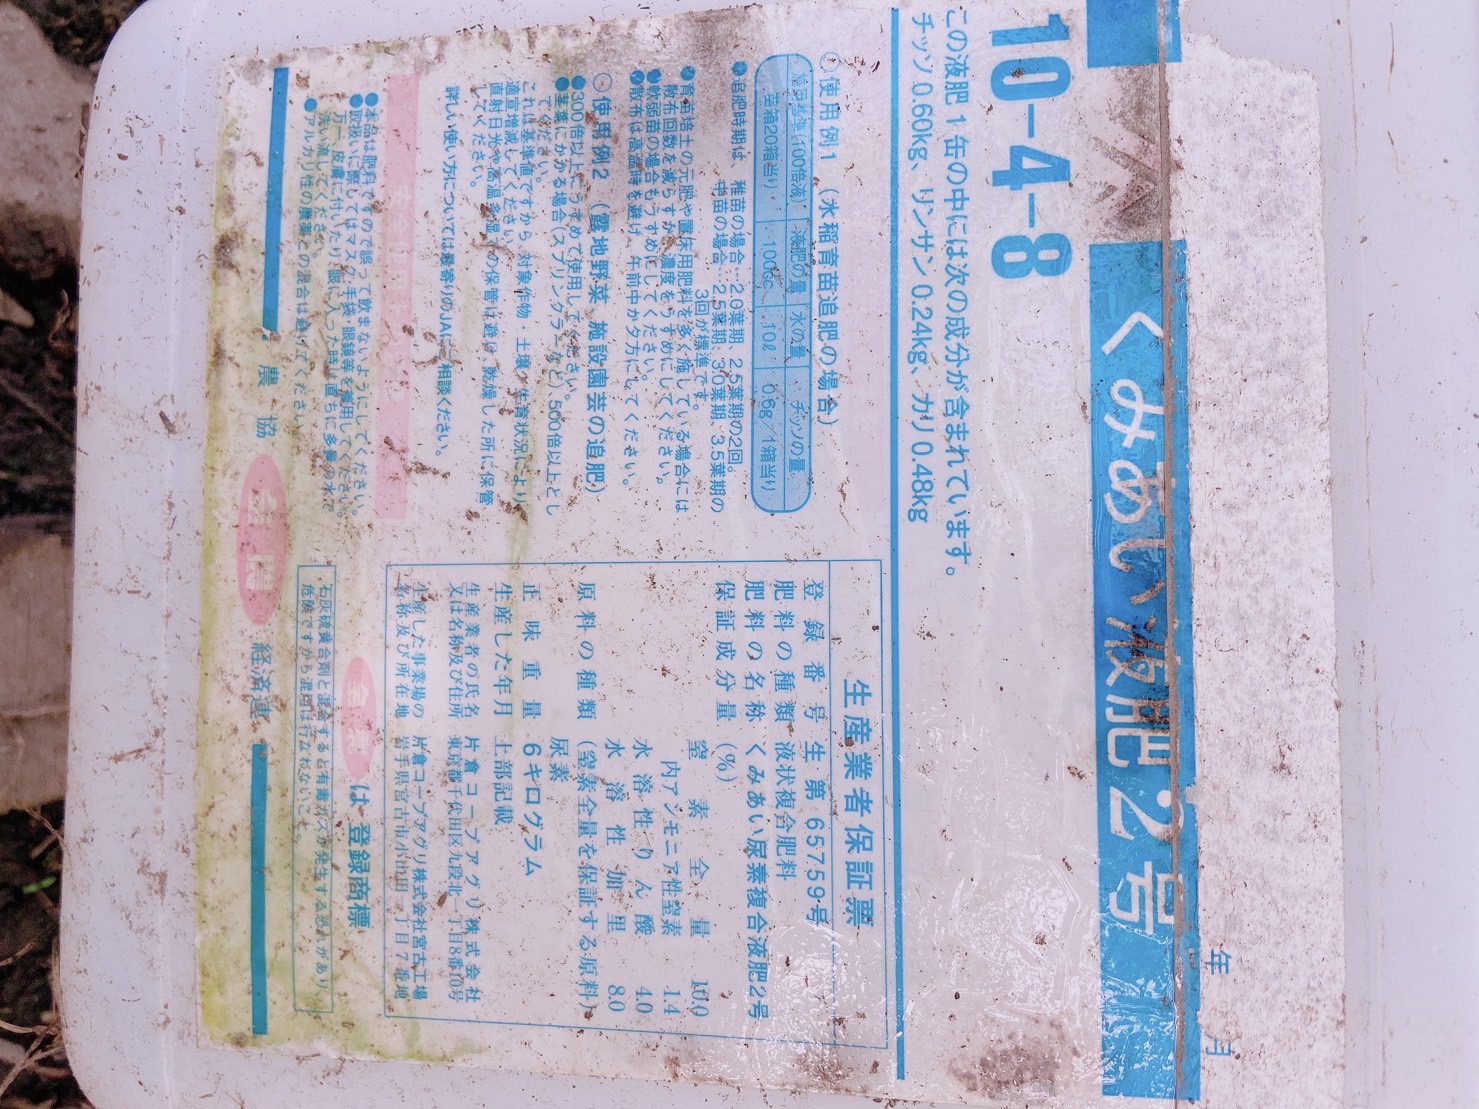 年　月
くみあい液肥2号
10-4-8
この液肥1缶の中には次の成分が含まれています。
チッソ0.60kg、リンサン0.24kg、カリ0.48kg
使用例1（水稲育苗追肥の場合）
(100倍液) 液肥の量 水の量 チッソの量
苗箱20箱当り 100cc 10ℓ 0.6g／1箱当り
●追肥時期は　稚苗の場合…2.0葉期、2.5葉期の2回。
中苗の場合…2.5葉期、3.0葉期、3.5葉期の
3回が標準です。
●育苗培土の元肥や置床用肥料を多く施している場合には
散布回数を減らすか、濃度をうすめにしてください。
●軟弱苗の場合もうすめにしてください。
●散布は高温時を避け、午前中か夕方にしてください。
使用例2（露地野菜、施設園芸の追肥）
●300倍以上にうすめて使用してください。
●茎葉にかかる場合(スプリンクラーなど)、500倍以上とし
てください。
これは基準値ですから、対象作物・土壌・生育状況により
適宜増減してください。
直射日光や高温多湿での保管は避け、乾燥した所に保管
してください。
詳しい使い方については最寄りのJAにご相談ください。
●本品は肥料ですので誤って飲まないようにしてください。
●取扱いに際してはマスク・手袋・眼鏡等を着用してください。
万一、皮膚に付いたり、眼に入った時は直ちに多量の水で
洗い流してください。
●アルカリ性の農薬との混合は避けてください。
農　協
全農
経済連
生産業者保証票
登録番号 生第65759号
肥料の種類 液状複合肥料
肥料の名称 くみあい尿素複合液肥2号
保証成分量(%)
窒素全量 10.0
内アンモニア性窒素 1.4
水溶性りん酸 4.0
水溶性加里 8.0
原料の種類 (窒素全量を保証する原料)
尿素
正味重量 6キログラム
生産した年月 上部記載
生産業者の氏名 片倉コープアグリ株式会社
又は名称及び住所 東京都千代田区九段北一丁目8番10号
生産した事業場の 片倉コープアグリ株式会社宮古工場
名称及び所在地 岩手県宮古市小山田一丁目7番地
は 登録商標
石灰硫黄合剤と混合すると有毒ガスが発生するおそれがあり
危険ですから混用は行なわないこと。